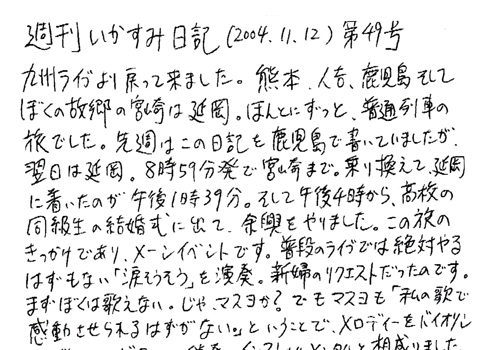 週刊いかすみ日記(2004.11.12)第49号
九州ライブより戻って来ました。熊本、人吉、鹿児島そして
ぼくの故郷の宮崎は延岡。ほんとにずっと、普通列車の
旅でした。先週はこの日記を鹿児島で書いていましたが、
翌日は延岡。8時59分発で宮崎まで。乗り換えて、延岡
に着いたのが午後1時39分。そして午後4時から、高校の
同級生の結婚式に出て、余興をやりました。この旅の
きっかけであり、メーンイベントです。普段のライブでは絶対やる
はずもない「涙そうそう」を演奏。新婦のリクエストだったのです。
まずぼくは歌えない。じゃ、マスヨか?でもマスヨも「私の歌で
感動させられるはずがない。」ということで、メロディーをバイオリン
相成りました